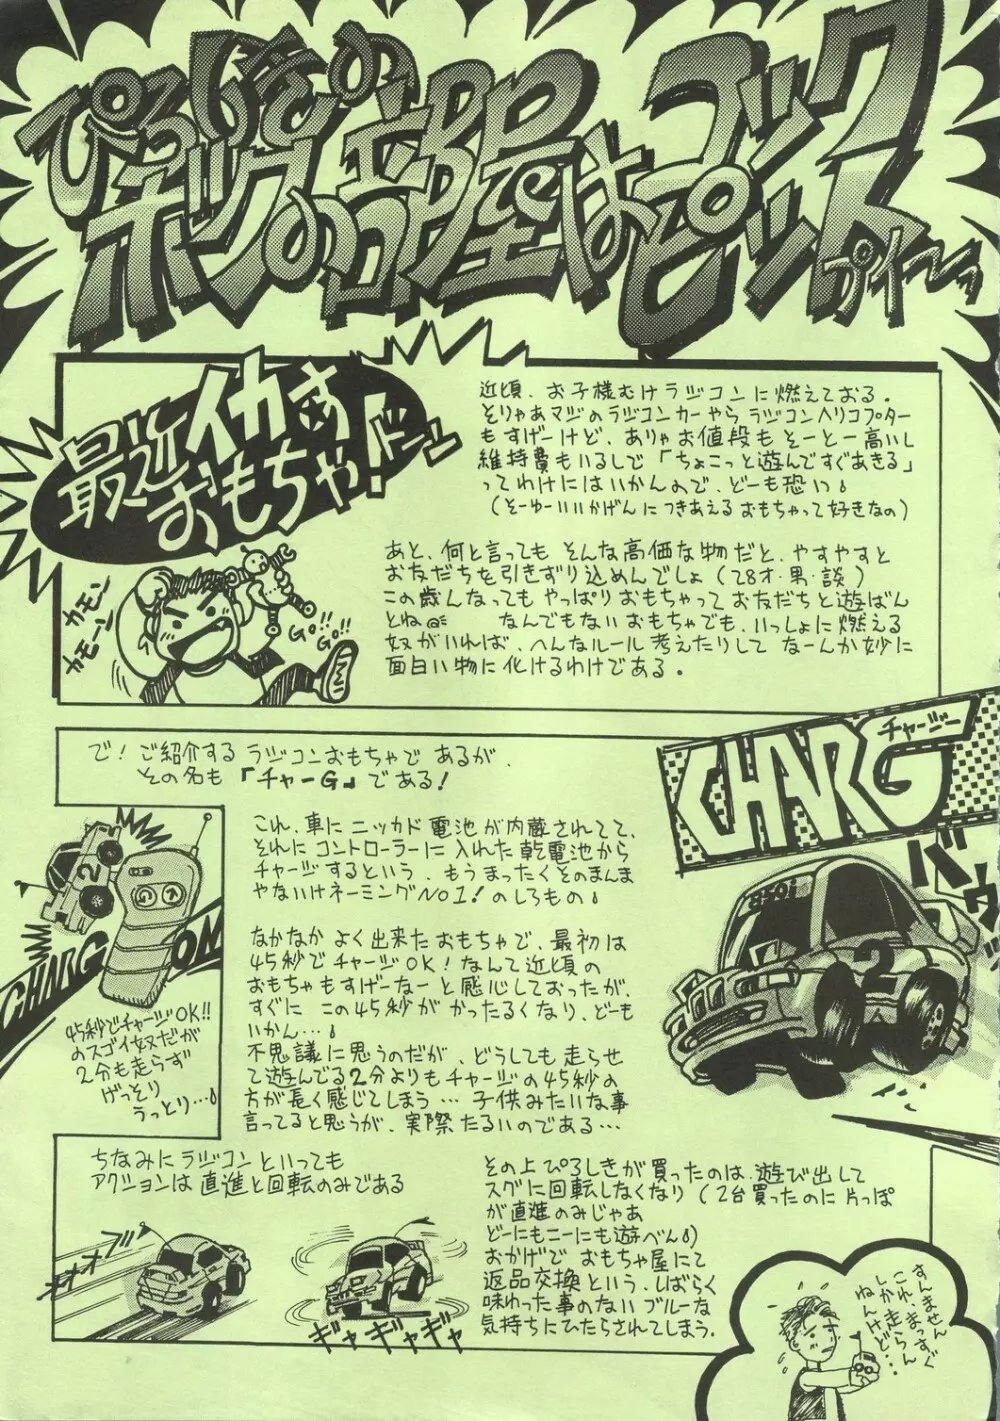 ぴろしきの
ボックスの部屋はコックピット
プイ〜ッ
最近イカす
おもちゃ!
ドーン
カモーン
カモーン
GO!!
GO!!
近頃、お子様むけラジコンに燃えておる。
そりゃあマジのラジコンカーやらラジコンヘリコプター
もすげーけど、ありゃお値段もそーとー高いし
維持費もいるしで「ちょこっと遊んですぐあきる」
ってわけにはいかんので、どーも恐い
(そーゆーいいかげんにつきあえるおもちゃって好きなの)
あと、何と言ってもそんな高価な物だと、やすやすと
お友だちを引きずり込めんでしょ(28才・男・談)
この歳んなってもやっぱりおもちゃってお友だちと遊ばん
とね なんでもないおもちゃでも、いっしょに燃える
奴がいれば、へんなルール考えたりして なーんか妙に
面白い物に化けるわけである。
で!ご紹介するラジコンおもちゃであるが、
その名も『チャーG』である!
CHARG
チャージー
バウッ
これ、車にニッカド電池が内蔵されてて、
それにコントローラーに入れた乾電池から
チャージするという、もうまったくそのまんま
やないけネーミングNo1!のしろもの
なかなかよく出来たおもちゃで、最初は
45秒でチャージOK!なんて近頃の
おもちゃもすげーなーと感心しておったが、
すぐに この45秒がかったるくなり、どーも
いかん…
不思議に思うのだが、どうしても走らせ
て遊んでる2分よりもチャージの45秒の
方が長く感じてしまう…子供みたいな事
言ってると思うが、実際たるいのである…
CHARG
ON
45秒でチャージOK!!
のスゴイ奴だが
2分も走らず
げっそり
うっとり…
ちなみにラジコンといっても
アクションは直進と回転のみである
オオオブ
ギャギャギャ
その上ぴろしきが買ったのは、遊び出して
スグに回転しなくなり(2台買ったのに片っぽ
が直進のみじゃあ
どーにもこーにも遊べん)
おかげでおもちゃ屋にて
返品交換という、しばらく
味わった事のないブルーな
気持ちにひたらされてしまう。
すんません
これ、まっすぐ
しか走らん
ねんけど…